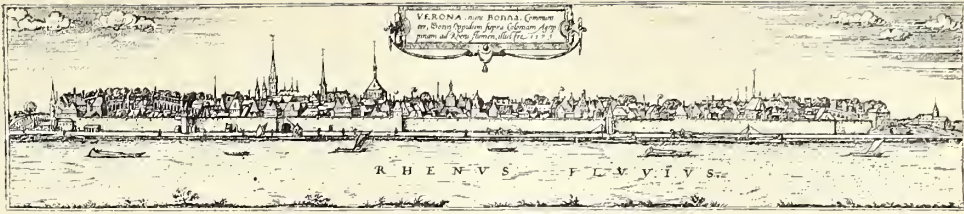 VERONA, nunc BONNA, Commun
ter, Bonn Oppidum supra Coloniam Agrip
pinam ad Rheni flumen, situ fre 1575
RHENVS FLVVIVS.